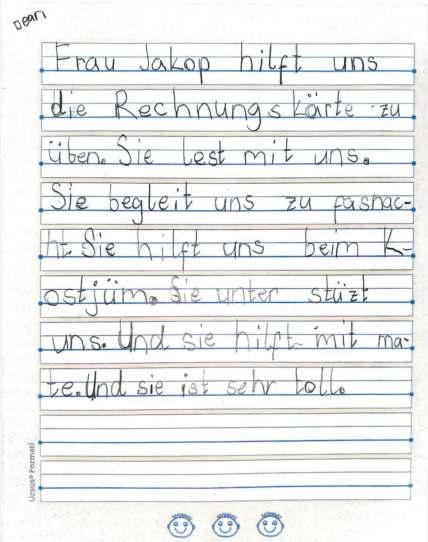 Dean
Frau Jakop hilft uns
die Rechnungs kärte zu
üben. Sie lest mit uns.
Sie begleit uns zu fasnac-
ht Sie hilft uns beim K-
ostjüm. Sie unter stüzt
uns. Und sie hilft mit ma-
te. Und sie ist sehr toll.
Ursus® Formati